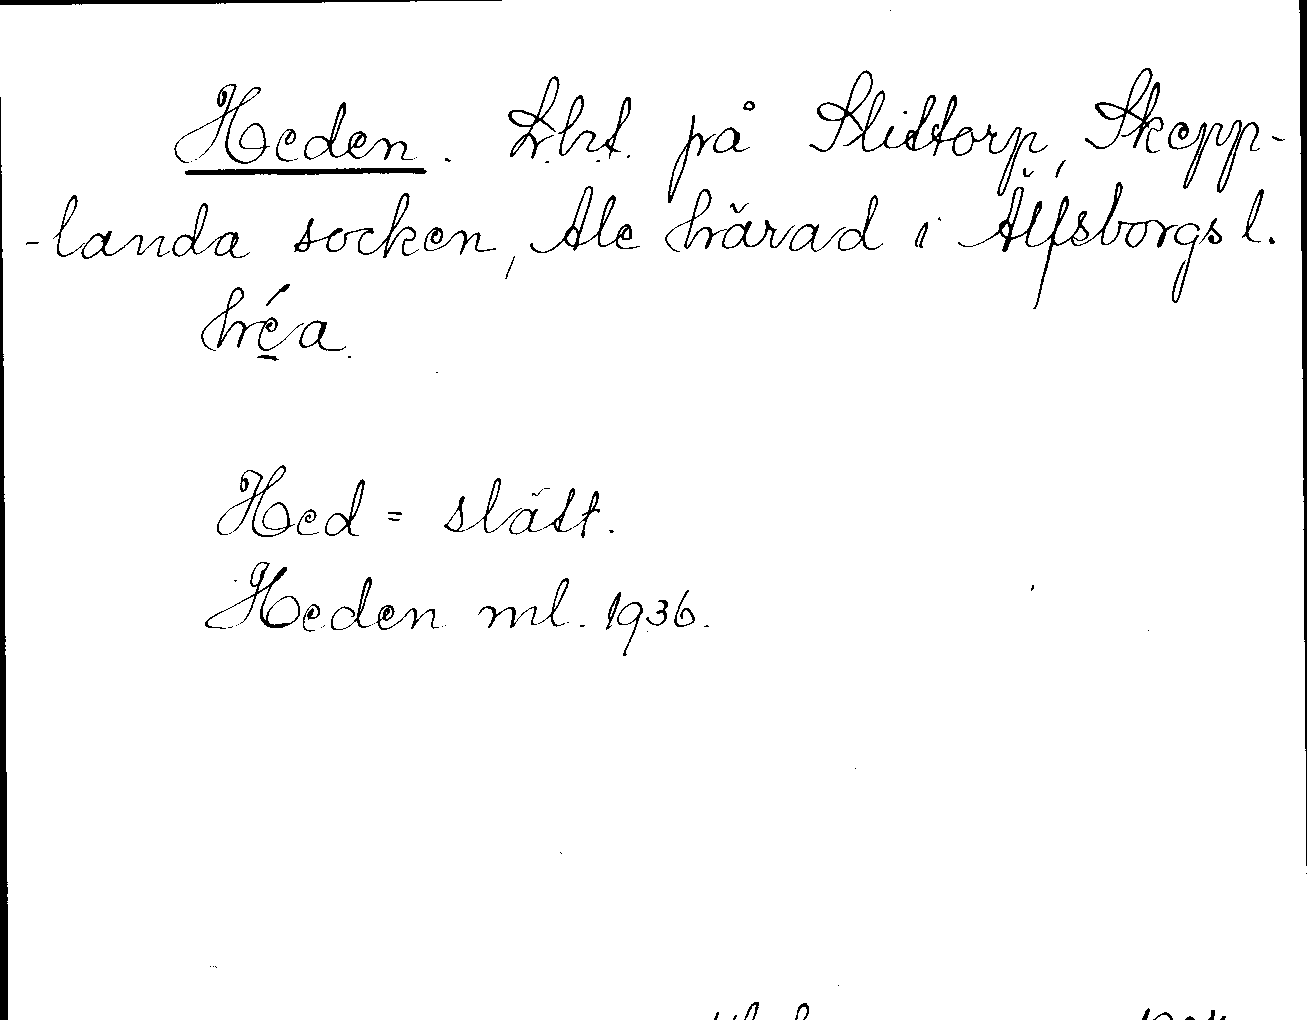 Heden. Lht. på Slittorp, Skepp-
-landa socken, Ale härad i Älfsborgs l.
héa.
Hed = slätt.
Heden ml. 1936.